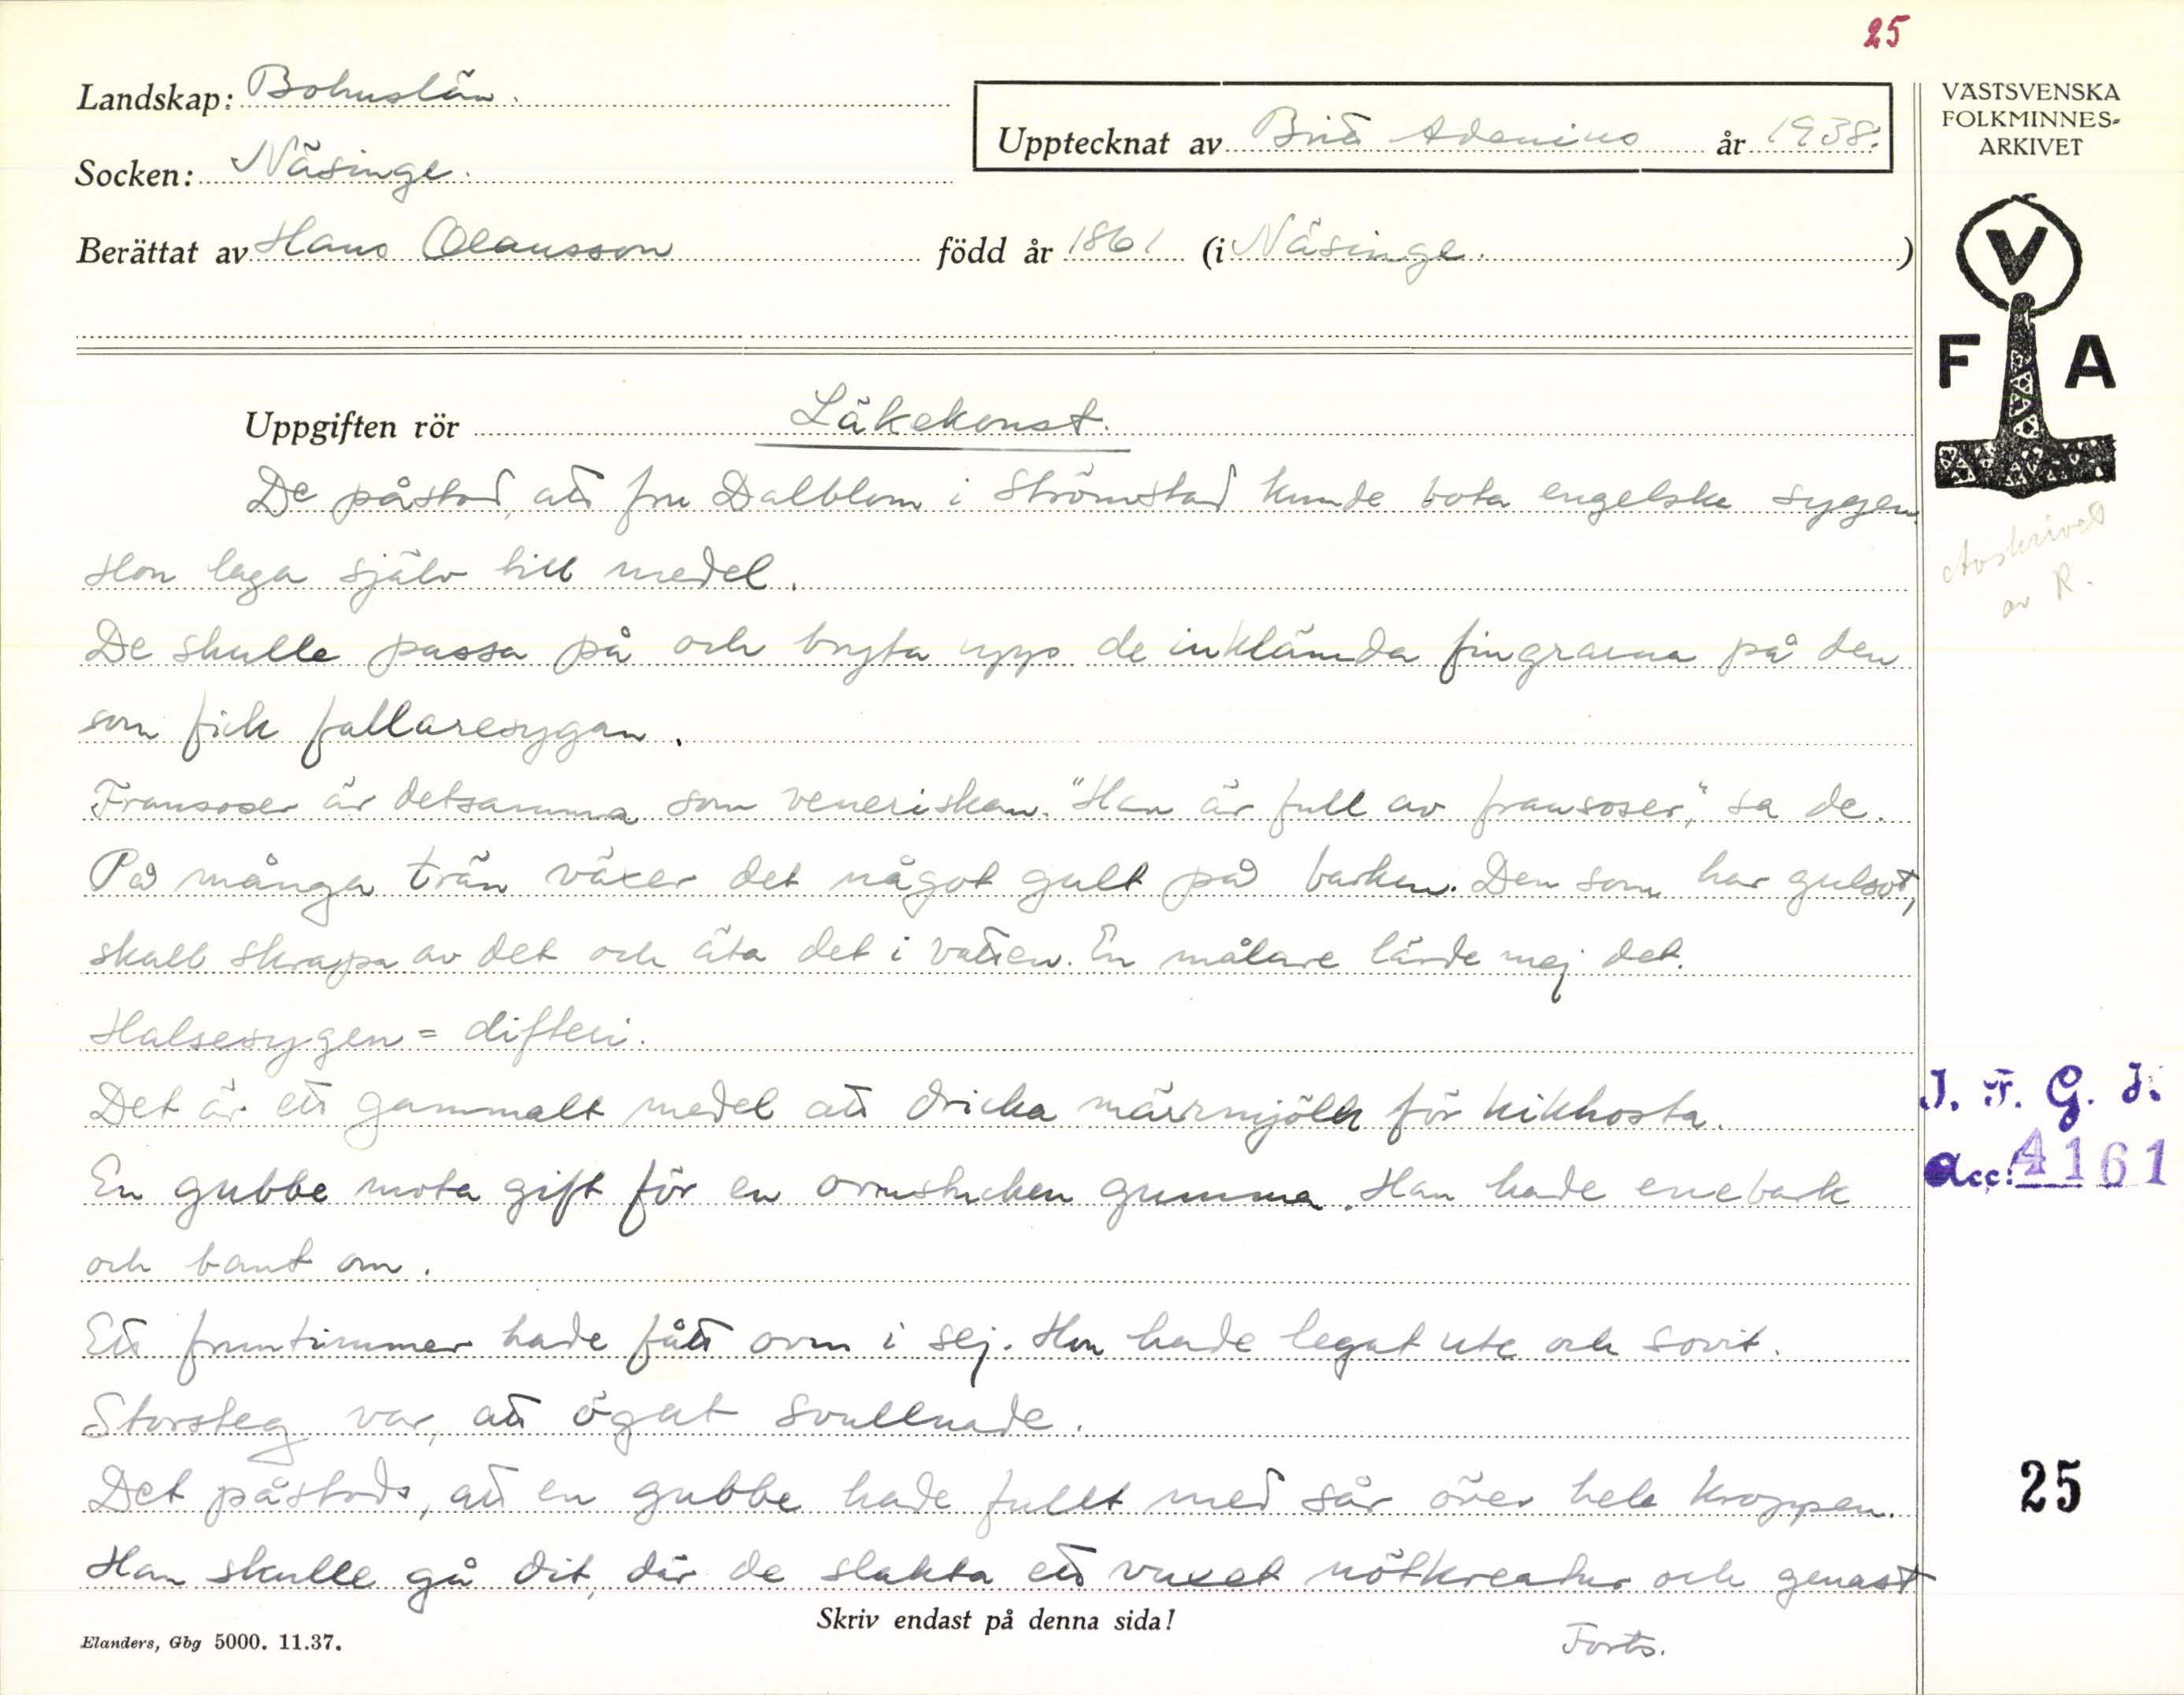 25
Landskap: Bohuslän.
Upptecknat av Brita Adenius år 1938.
Socken: Näsinge.
Berättat av Hans Olausson född år 1861 (i Näsinge.)
VÄSTSVENSKA
FOLKMINNES-
ARKIVET
V
F A
Uppgiften rör Läkekonst.
De påstod, att fru Dalblom i Strömstad kunde bota engelska sygen.
Hon laga själv till medel.
De skulle passa på och bryta upp de inklämda fingrarna på den
som fick fallaresygan.
Fransoser är detsamma som veneriskan. "Han är full av fransoser," sa de.
På många trän växer det något gult på barken. Den som har gulsot,
skall skrapa av det och äta det i vatten. En målare lärde mej det.
Halsesygen = difteri.
Det är ett gammalt medel att dricka märrmjölk för kikhosta.
En gubbe mota gift för en ormstucken gumma. Han hade enebark
och bant om.
Ett fruntimmer hade fått orm i sej. Hon hade legat ute och sovit.
Storsteg var, att ögat svullnade.
Det påstods, att en gubbe hade fullt med sår över hela kroppen.
Han skulle gå dit, där de slakta ett vuxet nötkreatur och genast
Forts.
Skriv endast på denna sida!
Elanders, Gbg 5000. 11.37.
Avskrivet
av R.
I. F. G. H.
Acc: 4161
25